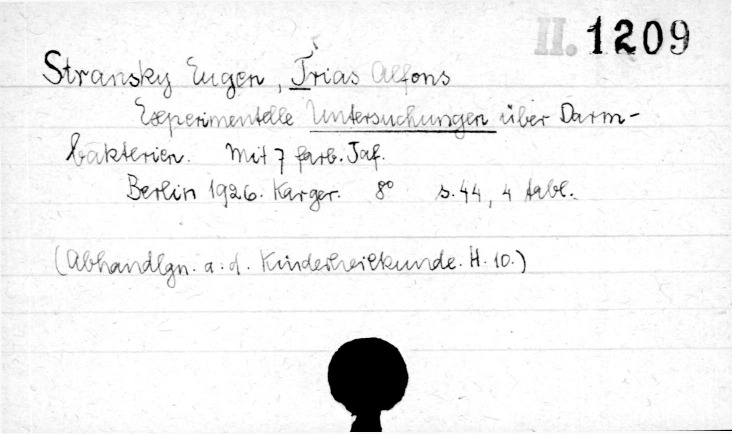 II. 1209
Stransky Eugen, Trias Alfons
Experimentelle Untersuchungen über Darm-
bakterien. Mit 7 farb. Taf.
Berlin 1926. Karger. 8° s. 44, 4 tabl.
(Abhandlgn. a. d. Kinderheilkunde. H. 10.)